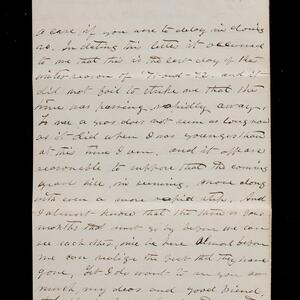 a case, if you were to delay in doing
so. In dating this letter it occurred
to me that this is the last day of the
winter season of '71-and-72, and it
did not fail to strike me that the
time was passing, rapidly away.
To me a year does not seem as long now
as it did when I was younger than
at this time I am, and it appears
reasonable to suppose that the coming
year will, in running, move along
with even a more rapid step. And
I almost know that the three or four
months that must go by before we can
see each other, will be here almost before
we can realize the fact that they have
gone. Yet I do want to see you so
much my dear and good friend,